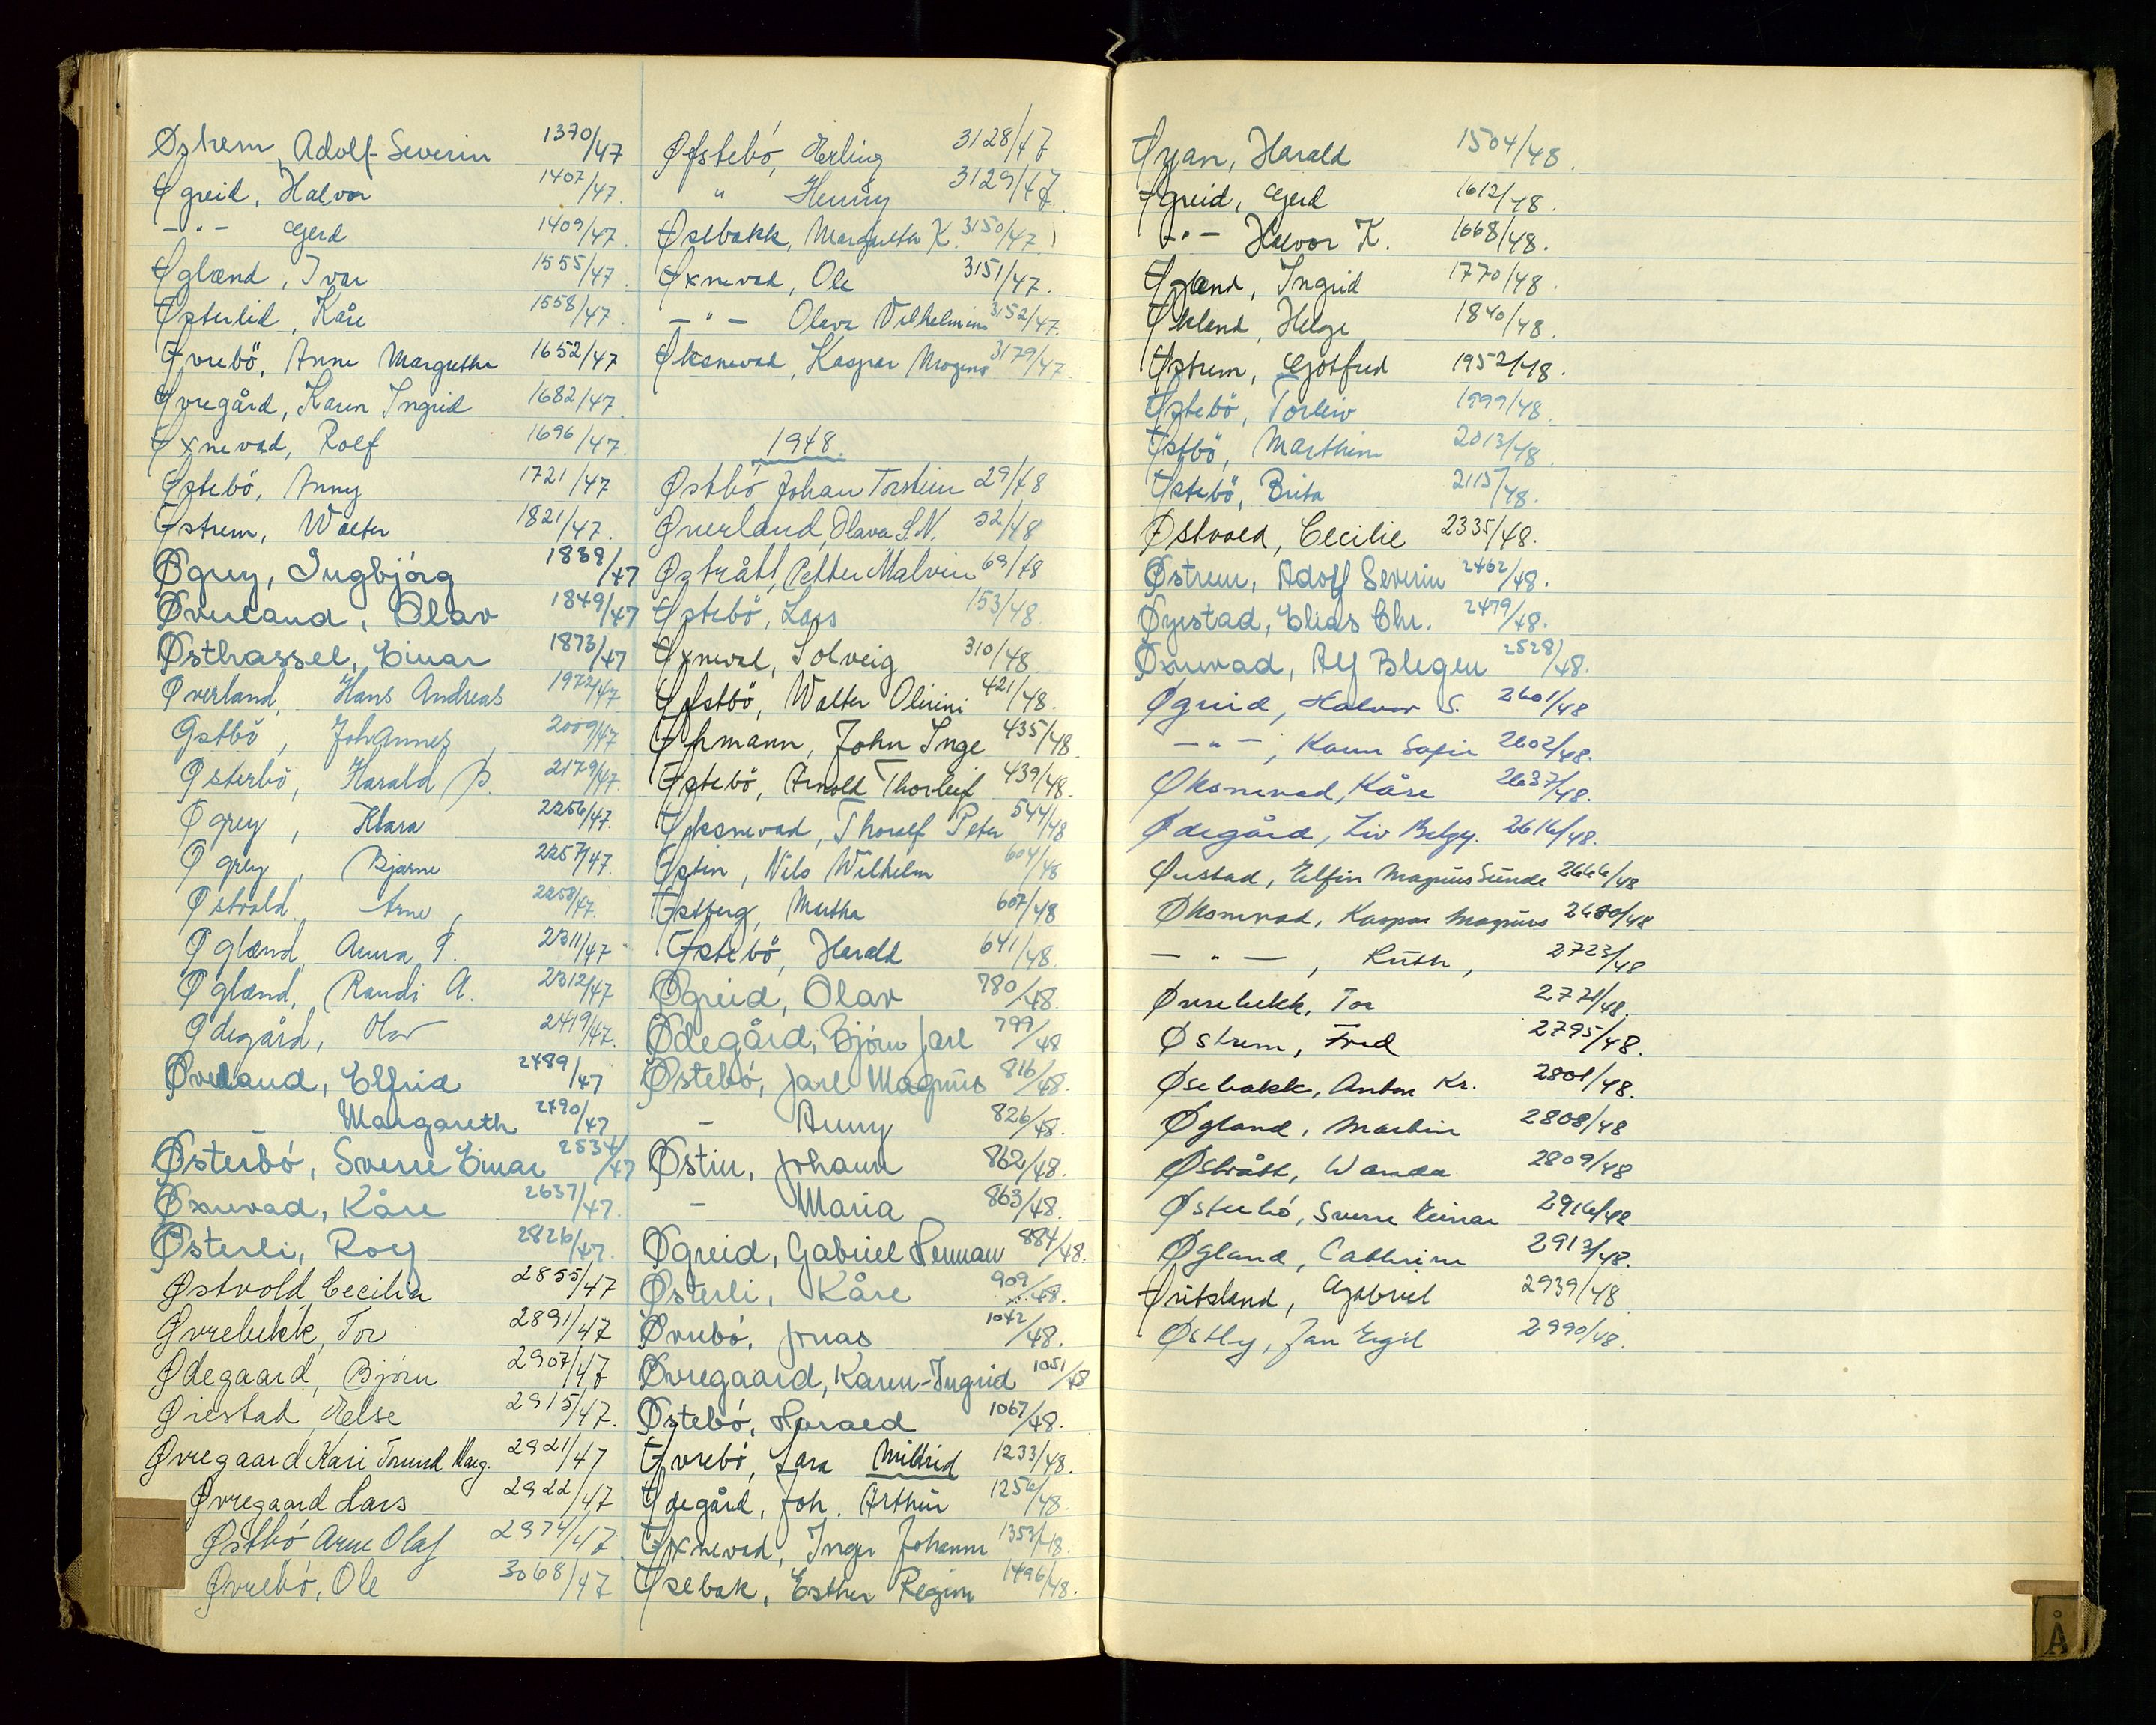 Østrem, Adolf-Severin 1370/47
Øgreid, Halvor 1407/47.
-"- Gerd 1409/47.
Øgland, Ivar 1555/47
Østerlid, Kåre 1558/47.
Øvrebö, Anne Margrethe 1652/47
Øvregård, Karen Ingrid 1682/47.
Øxnevad, Rolf 1696/47.
Østebö, Anny 1721/47
Østrem, Walter 1821/47.
Øgrey, Ingbjörg 1838/47
Øverland, Olav 1849/47
Østhassel, Einar 1873/47
Øverland, Hans Andreas 1972/47
Østbö, Johannes, 2009/47
Østerbö, Harald P. 2179/47.
Øgrey, Klara 2256/47.
Øgrey, Bjarne 2257/47.
Østvold, Arne, 2258/47.
Øgland, Anna T. 2311/47
Øgland, Randi A. 2312/47
Ødegård, Olav 2419/47.
Øverland, Elfrid 2489/47
- Margareth 2490/47
Østerbö, Sverre Einar 2534/47
Øxnevad, Kåre 2637/47.
Østerli, Roy 2826/47.
Østvold Cecilia 2855/47
Øvrebekk, Tor 2891/47
Ødegaard, Björn 2907/47
Øiestad, Else 2915/47.
Øvregaard Kari Trund Marg. 2921/47
Øvregaard Lars 2922/47
Østbö Arne Olaf 2974/47.
Øvrebö, Ole 3068/47
Øfstebö, Erling 3128/47
" Henny 3129/47.
Øsebakk, Margrethe K. 3150/47
Øxnevad, Ole 3151/47.
-"- Olava Vilhelmine 3152/47.
Øksnevad, Kaspar Mogens 3179/47.
1948.
Østbö, Johan Torstein 29/48
Øverland, Olava S.N. 52/48
Østrått, Petter Malvin 69/48
Østebö, Lars 153/48.
Øxnevad, Solveig 310/48
Øfstbö, Walter Olivini 421/48.
Øhmann, John Inge 435/48
Østebö, Arnold Thorleif 439/48.
Øksnevad, Thoralf Peter 544/48
Østin, Nils Wilhelm 604/48
Østberg, Martha 607/48
Østebö, Harald 641/48.
Øgreid, Olav 780/48.
Ødegård, Björn Jarl 799/48
Østebö, Jarl Magnus 816/48.
- Anny 826/48.
Østin, Johann 862/48.
- Maria 863/48.
Øgreid, Gabriel Herman 884/48.
Østerli, Kåre 909/48.
Øvrebö, Jonas 1042/48.
Øvregaard, Karen-Ingrid 1051/48
Østebö, Harald 1067/48.
Øvrebö, Lara Mildrid 1233/48.
Ødegård, Joh. Arthur 1256/48.
Øxnevad, Inger Johanne 1353/48.
Øsebak, Esther Regine 1496/48.
Øyan, Harald 1504/48.
Øgreid, Gerd 1612/48.
-"- Halvor K. 1668/48.
Øgland, Ingrid 1770/48.
Økland, Helge 1840/48.
Østrem, Gotfred 1952/48.
Østebö, Torleiv 1999/48.
Østbö, Marthine 2013/48.
Østebö, Brita 2115/48.
Østvold, Cecilie 2335/48.
Østrem, Adolf Severin 2462/48.
Øyestad, Elias Chr. 2479/48.
Øxnevad, Alf Blegen 2528/48.
Øgreid, Halvor S. 2601/48
-"-, Karen Sofie 2602/48.
Øksnevad, Kåre 2637/48.
Ødegård, Liv Betzy. 2616/48.
Øiestad, Elfin Magnus Sunde 2666/48
Øksnevad, Kaspar Magnus 2680/48
-"-, Ruth, 2723/48
Øvrebekk, Tor 2771/48.
Østrem, Fred 2795/48.
Øsebakk, Anton Kr. 2801/48.
Øgland, Martin 2808/48
Østrått, Wanda 2809/48
Østerbö, Sverre Reinar 2916/48
Øgland, Cathrine 2913/48.
Øritsland, Gabriel 2939/48
Østby, Jan Egil 2990/48.
Å